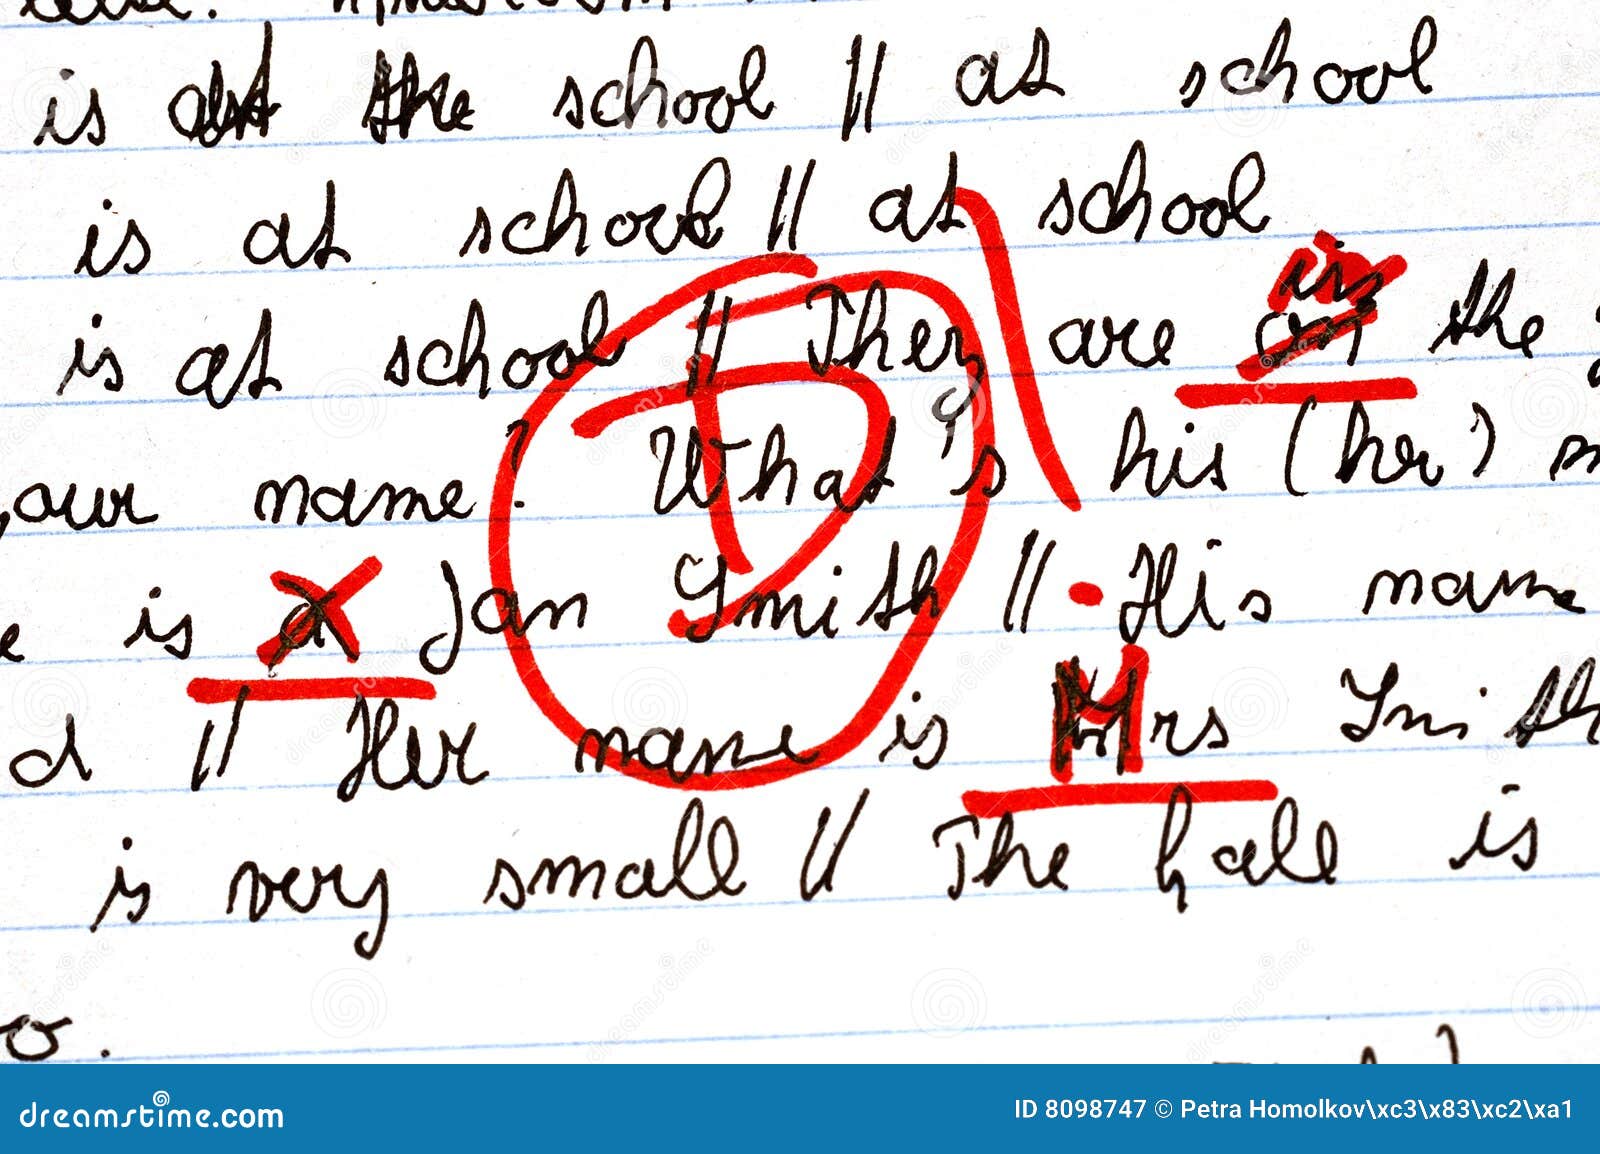 is at the school // at school
is at school // at school
is at school // They are in the
our name? What's his (her)
is a Jan Smith // His name
d // Her name is Mrs Smith
is very small // The hall is
o.
D
dreamstime.com
ID 8098747 © Petra Homolkov\xc3\x83\xc2\xa1